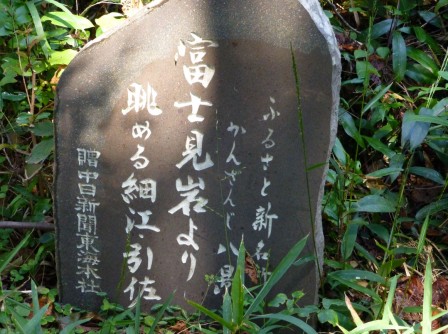 ふるさと新名
かんざんじ八景
富士見岩より
眺める細江・引佐
贈中日新聞東海本社